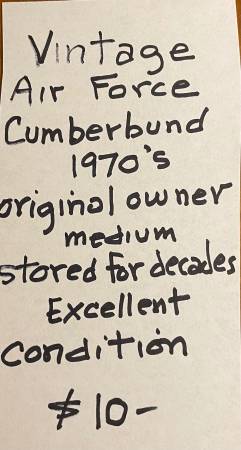 Vintage
Air Force
Cumberbund
1970's
original owner
medium
stored for decades
Excellent
condition
$10-